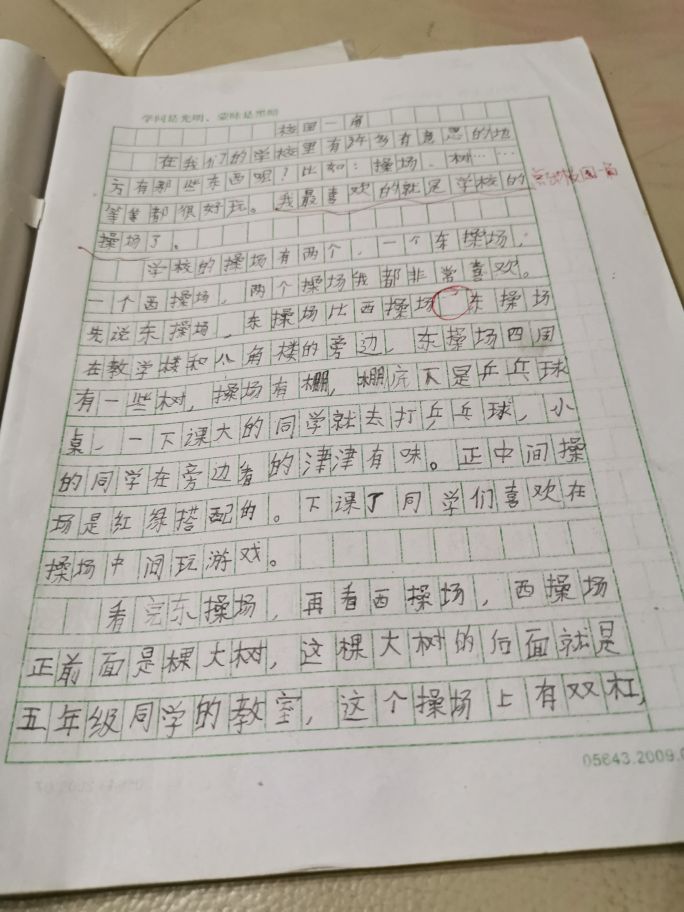 学问是光明、蒙昧是黑暗
校园一角
在我们的学校里有许多有意思的地
方有那些东西呢？比如：操场、树……
等等都很好玩。我最喜欢的就是学校的
操场了。
学校的操场有两个，一个东操场，
一个西操场，两个操场我都非常喜欢。
先说东操场，东操场比西操场东操场
在教学楼和八角楼的旁边，东操场四周
有一些树，操场有棚，棚底下是乒乓球
桌，一下课大的同学就去打乒乓球，小
的同学在旁边看的津津有味。正中间操
场是红绿搭配的。下课了同学们喜欢在
操场中间玩游戏。
看完东操场，再看西操场，西操场
正前面是棵大树，这棵大树的后面就是
五年级同学的教室，这个操场上有双杠，
05643.2009.